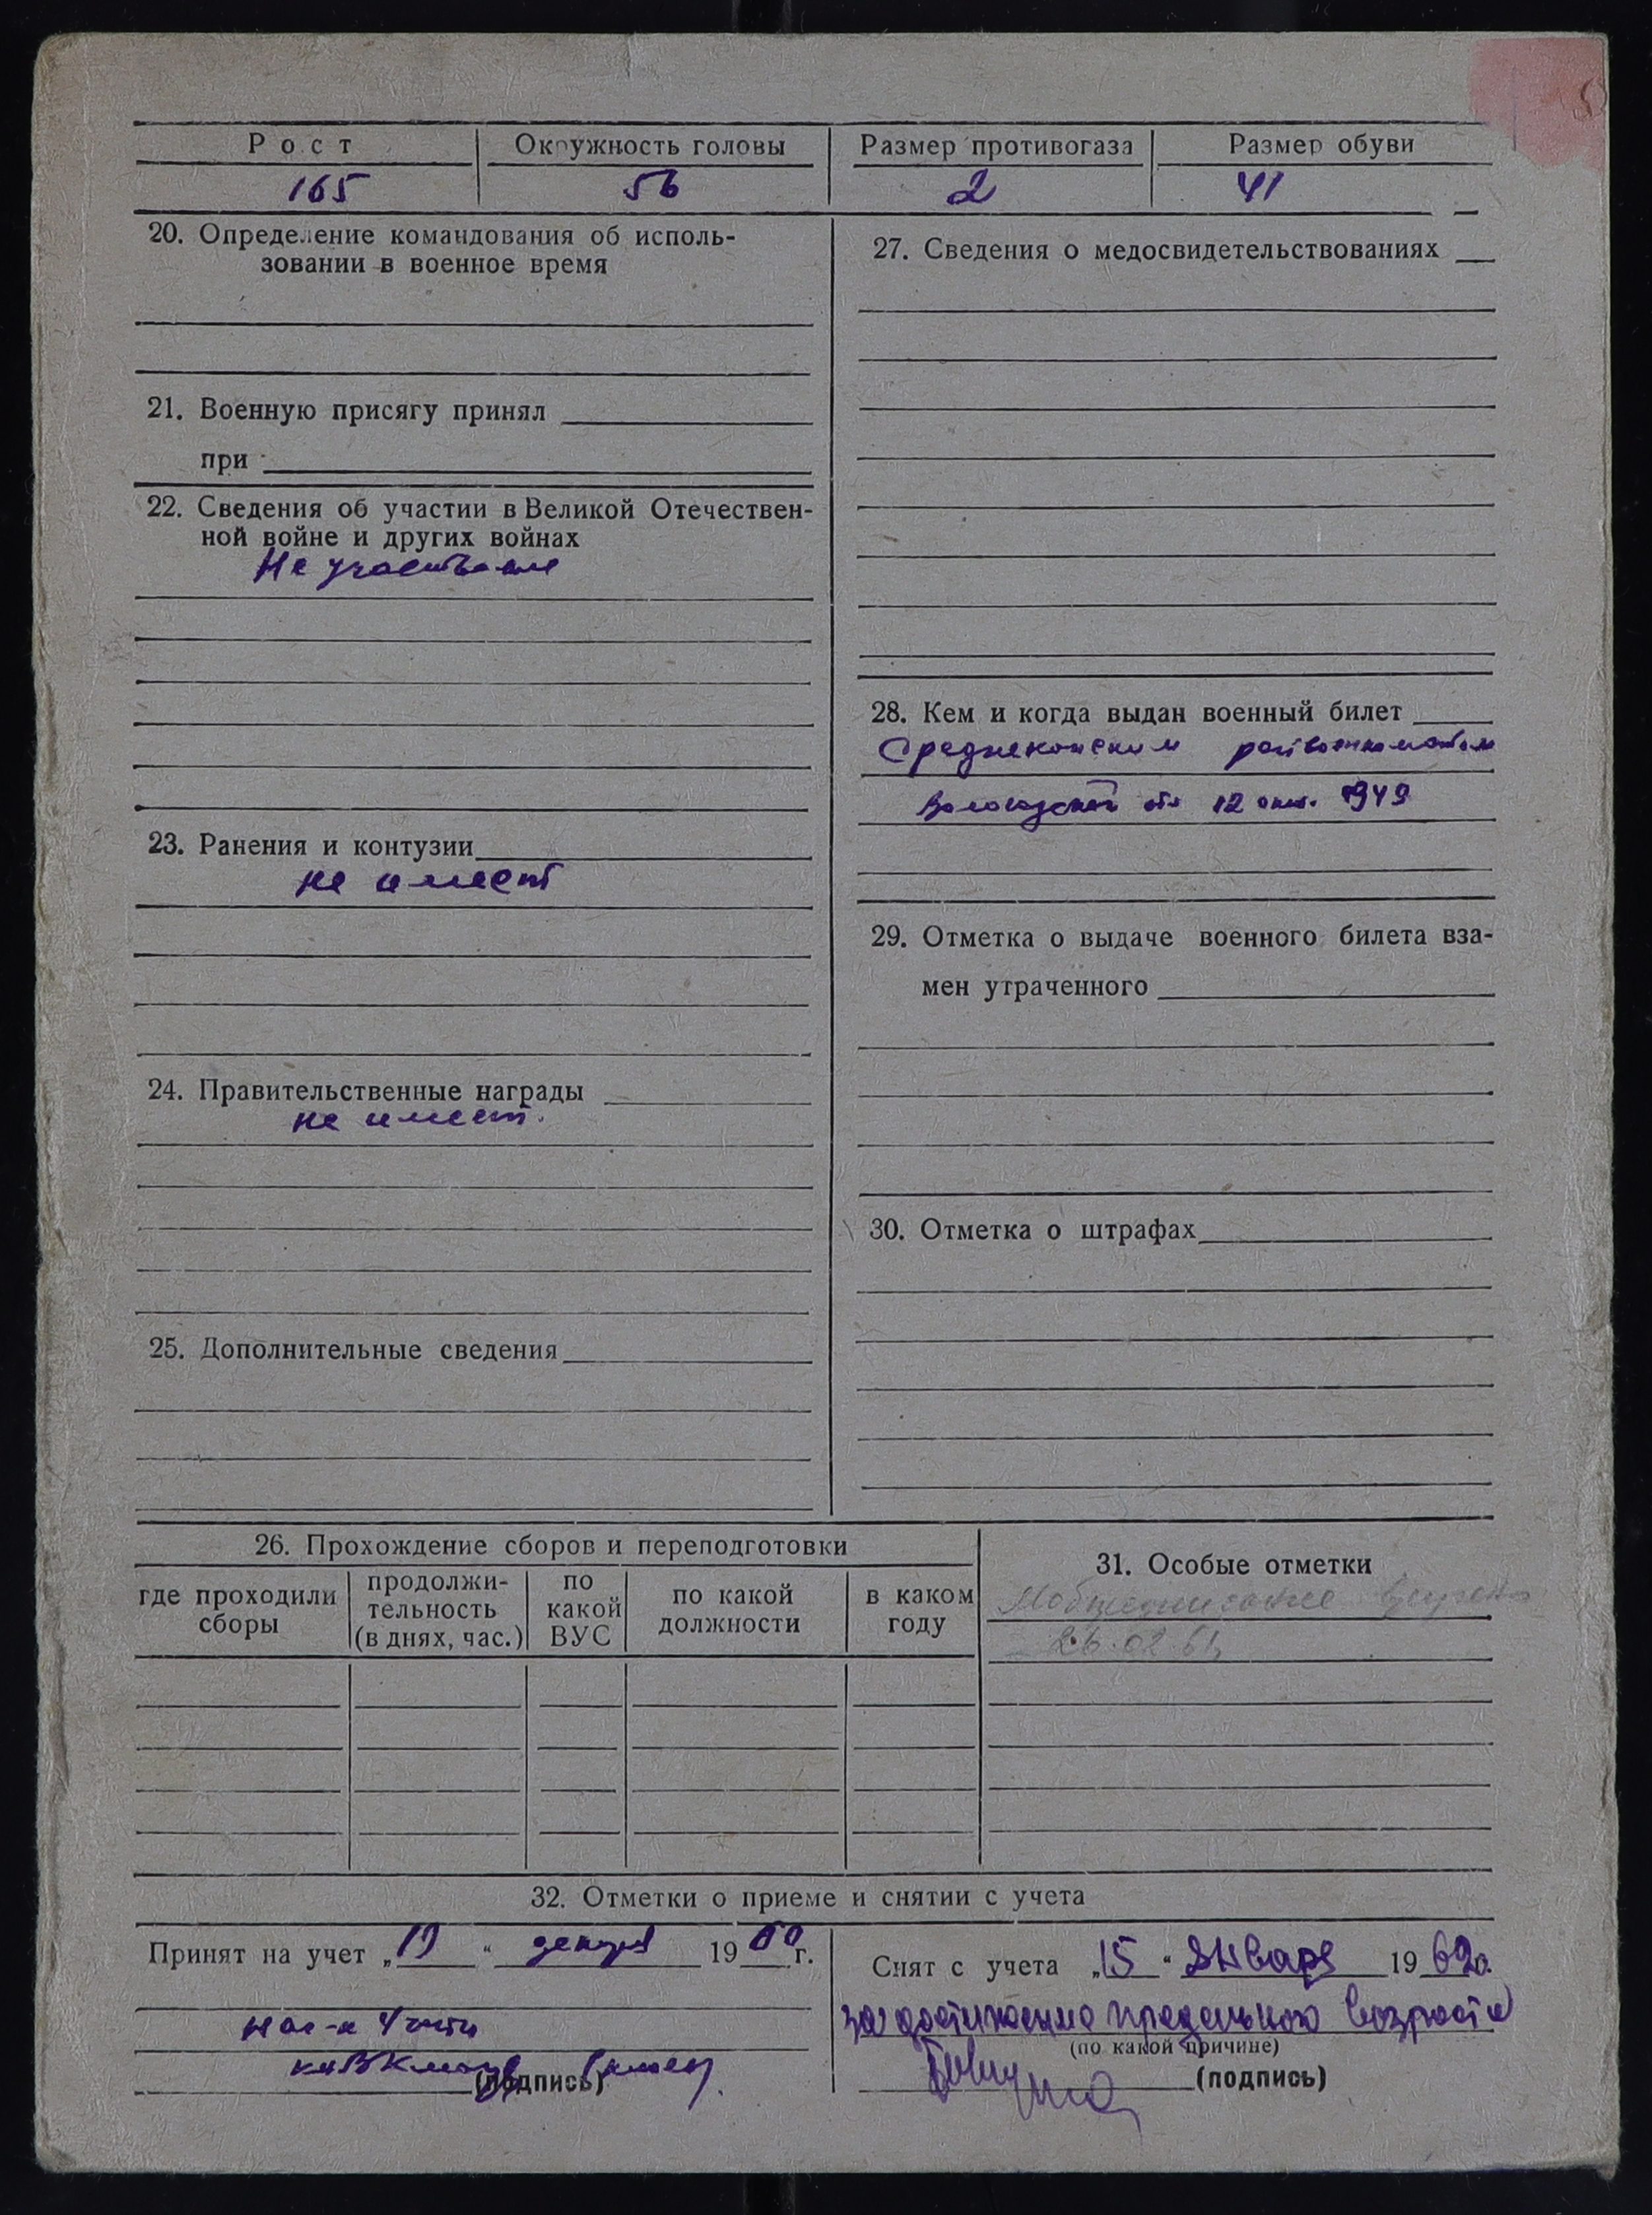 Рост
Окружность головы
Размер противогаза
Размер обуви
165
56
2
41
20. Определение командования об исполь-
зовании в военное время
21. Военную присягу принял
при
22. Сведения об участии в Великой Отечествен-
ной войне и других войнах
Не участвовал
23. Ранения и контузии
не имеет
24. Правительственные награды
не имеет.
25. Дополнительные сведения
27. Сведения о медосвидетельствованиях
28. Кем и когда выдан военный билет
райвоенкоматом
Вологодской обл 12 окт. 1949
29. Отметка о выдаче военного билета вза-
мен утраченного
30. Отметка о штрафах
26. Прохождение сборов и переподготовки
где проходили
сборы
продолжи-
тельность
(в днях, час.)
по
какой
ВУС
по какой
должности
в каком
году
31. Особые отметки
Мобпредписание вручено
26.02.61
32. Отметки о приеме и снятии с учета
Принят на учет „19“ декабря 1960 г.
нач-к 4 части
(подпись)
Снят с учета „15“ Января 1969г.
за достижение предельного возраста
(по какой причине)
(подпись)